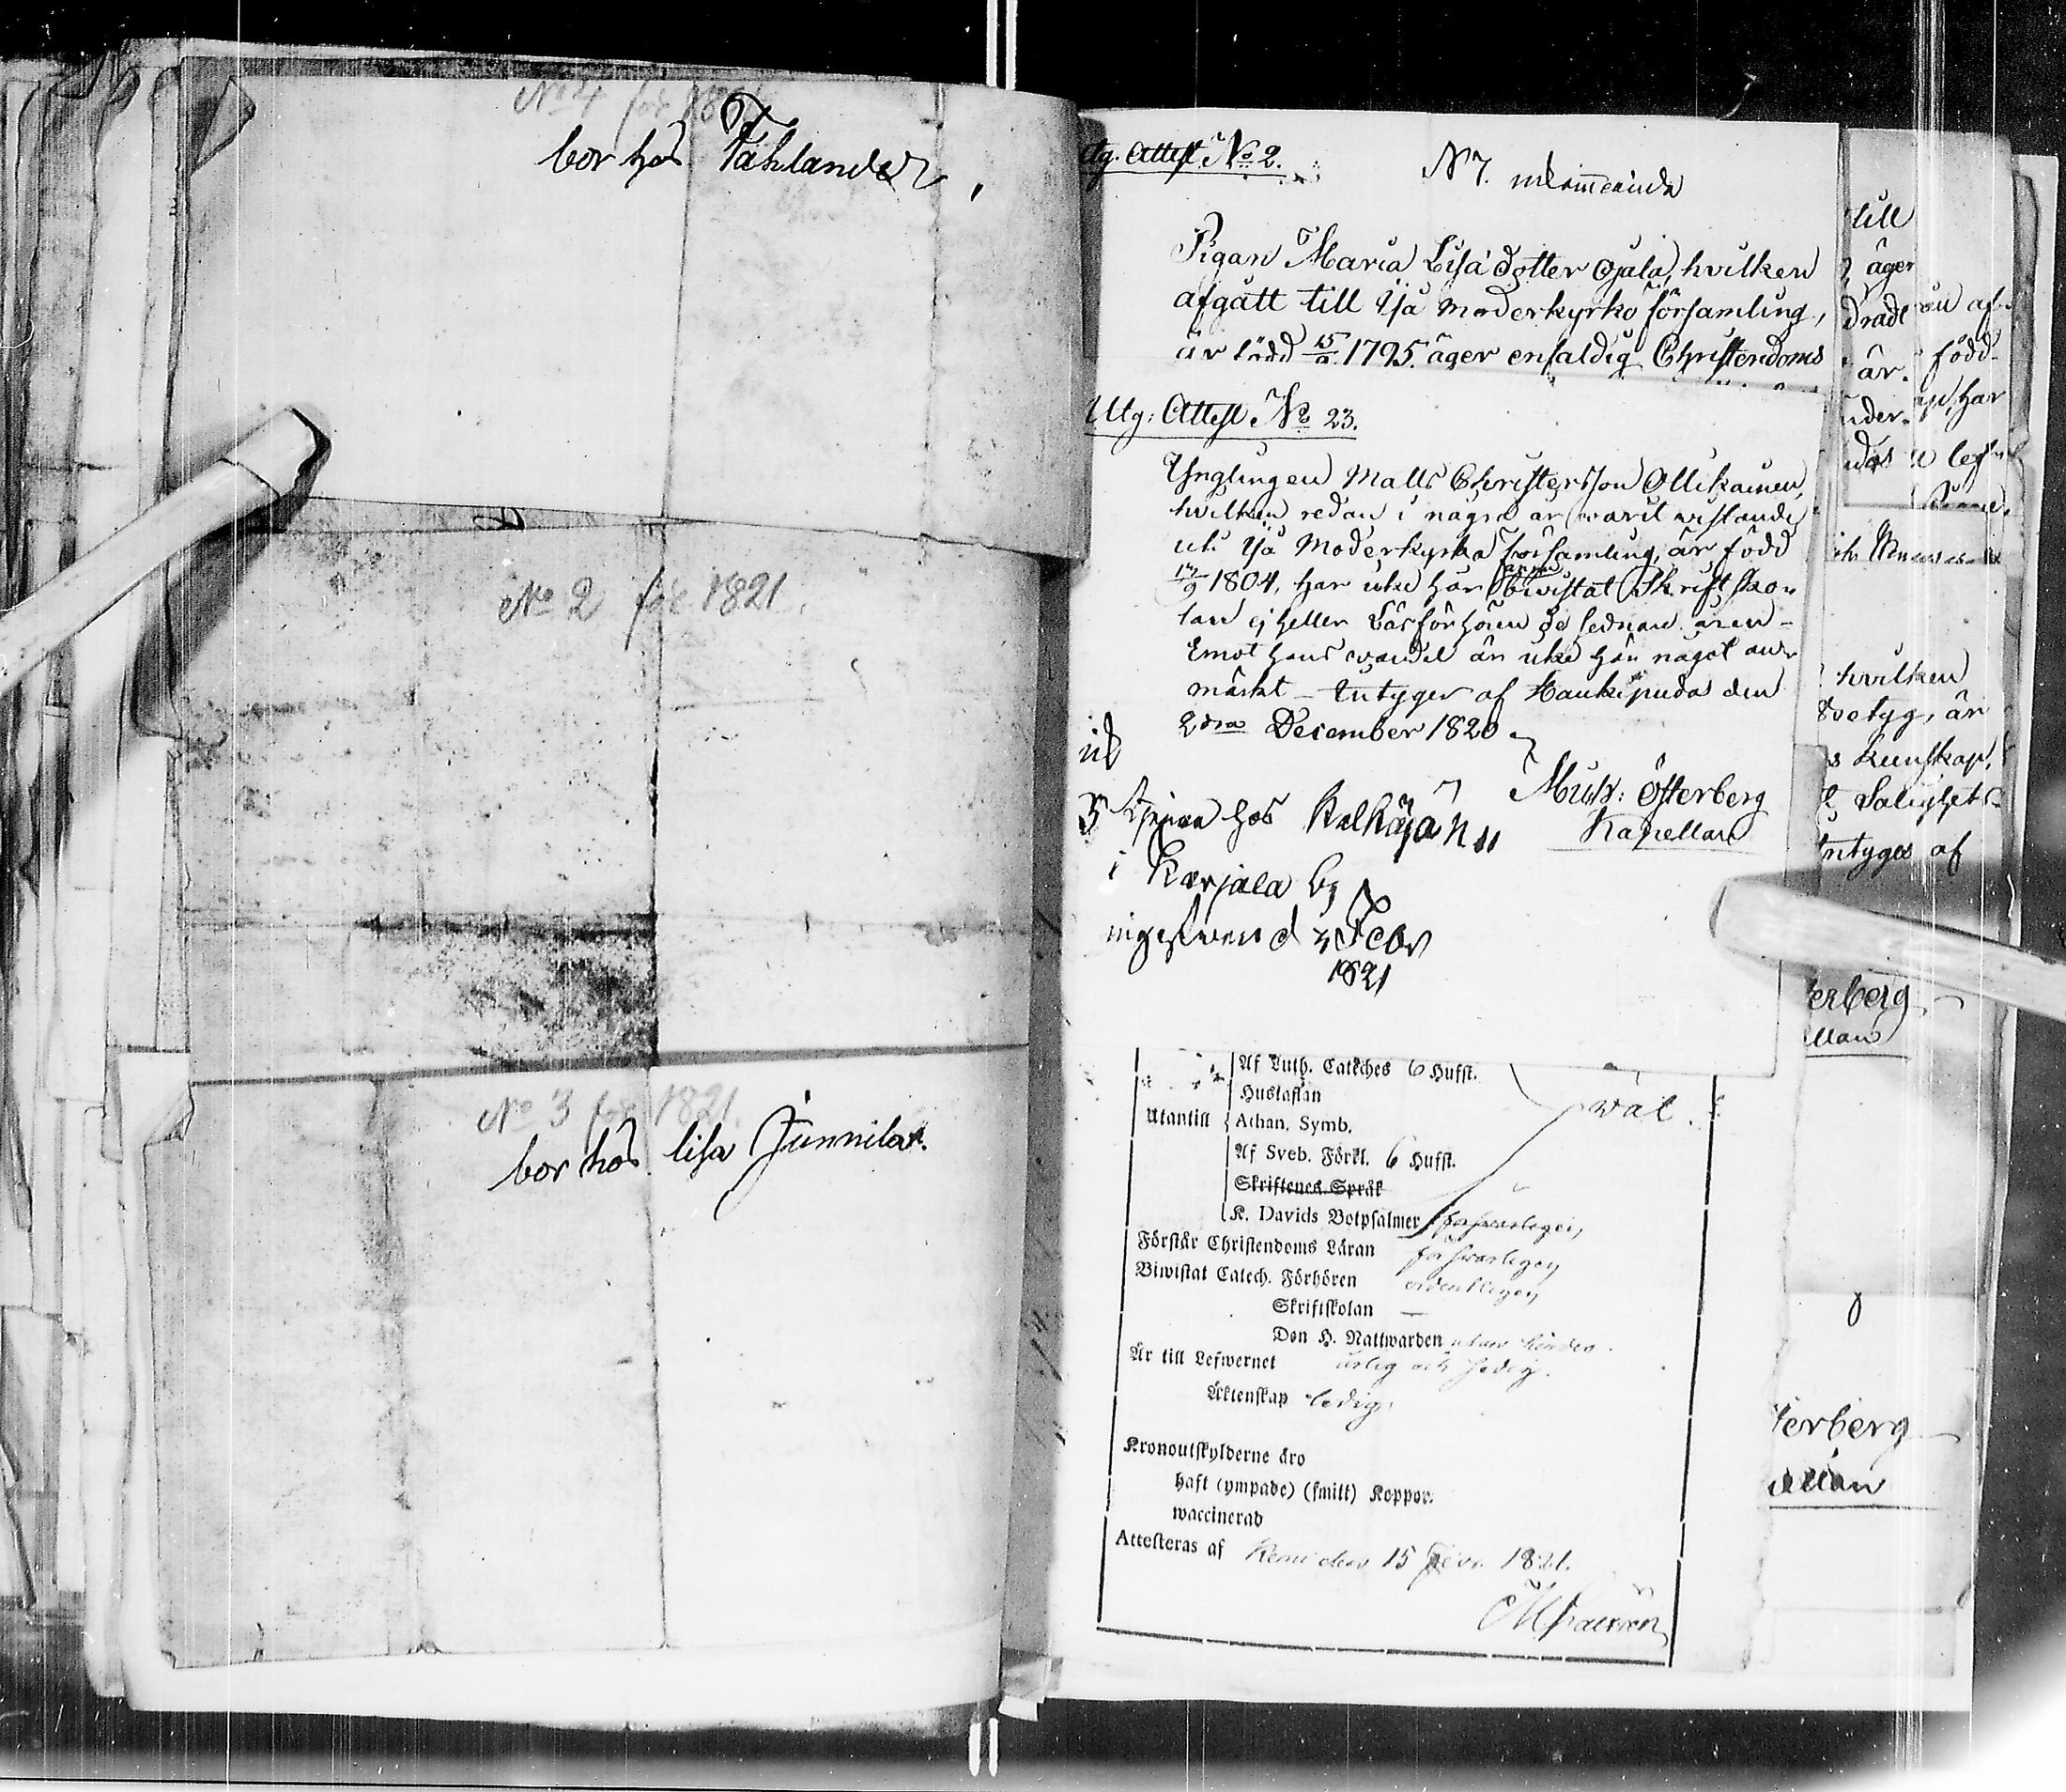 No 4 för 182
bor hos Fahlander,
No 2 för 1821.
No 3 för 1821
bor hos lisa Junnila.
Utg. Attest No 2.
N 7. inkommande
Pigan Maria Lisa dotter Ojala, hvilken
afgått till Ijå moderkyrko församling,
är född 15 1795. äger enfaldig Christendoms
Utg: Attest No 23.
Ynglingen Matts Christersson Ollikainen,
hvilken redan i några år varit vistande
uti Ijå Moderkyrko församling, är född
17/9 1804, har icke här ännu bivistat Skriftsko-
lan ej heller Läsförhören de sednare åren -
Emot hans vandel är icke här något an-
märkt - Intygar af Haukipudas den
2dra December 1820
Mich: Österberg
Kapellan
tjenar hos
i Karjala by
d Febr
1821
Af Luth. Catèches 6 Hufst.
Hustaflan
Utantill Athan. Symb.
Af Sveb. Förkl. 6 Hufst.
väl.
Skriftenes Språk
K. Davids Botpsalmer försvarligen,
Förstår Christendoms Läran försvarligen
Biwistat Catech. Förhören ordentligen,
Skriftskolan —
Den H. Nattwarden utan hinder.
Är till Lefwernet ärlig och
Äktenskap ledig.
Kronoutskylderne äro
haft (ympade) (smitt) Koppor.
waccinerad
Attesteras af Kemi den 15 1821.
till
äger
är.
än af
född
har
hvilken
betyg, är
s kunskap,
Salighets
intygas af
erberg
llan
terberg
ellan